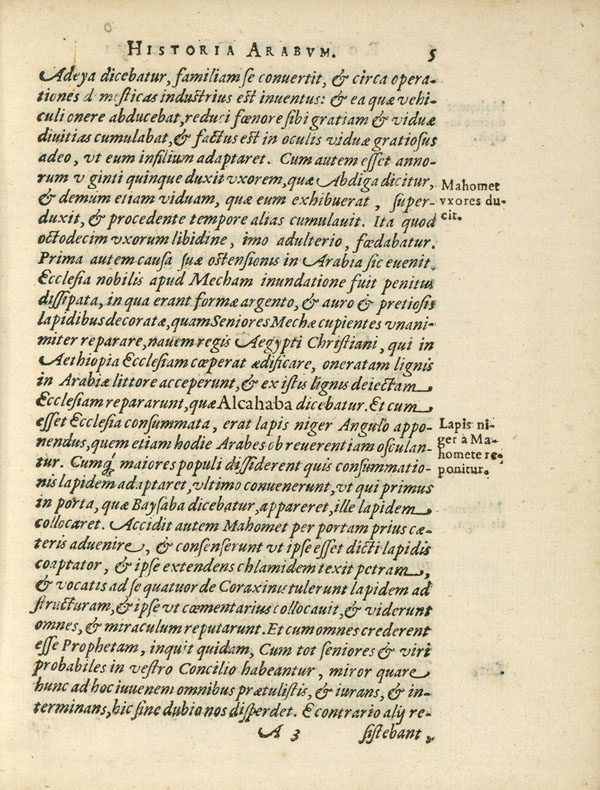 HISTORIA ARABVM. 5
Adeya dicebatur, familiam se conuertit, & circa opera-
tiones domesticas industrius est inuentus: & ea quæ vehi-
culi onere abducebat, reduci fœnore sibi gratiam & viduæ
diuitias cumulabat, & factus est in oculis viduæ gratiosus
adeo, vt eum in filium adaptaret. Cum autem esset anno-
rum viginti quinque duxit vxorem, quæ Abdiga dicitur,
& demum etiam viduam, quæ eum exhibuerat, super-
duxit, & procedente tempore alias cumulauit. Ita quod
octodecim vxorum libidine, imo adulterio, fœdabatur.
Mahomet
vxores du-
cit.
Prima autem causa suæ ostensionis in Arabia sic euenit.
Ecclesia nobilis apud Mecham inundatione fuit penitus
dissipata, in qua erant formæ argento, & auro & pretiosis
lapidibus decoratæ, quam Seniores Mechæ cupientes vnani-
miter reparare, nauem regis Aegypti Christiani, qui in
Aethiopia Ecclesiam cœperat ædificare, oneratam lignis
in Arabiæ littore acceperunt, & ex istis lignis deiectam
Ecclesiam repararunt, quæ Alcahaba dicebatur. Et cum
esset Ecclesia consummata, erat lapis niger Angulo appo-
nendus, quem etiam hodie Arabes ob reuerentiam osculan-
tur. Cumq; maiores populi dissiderent quis consummatio-
nis lapidem adaptaret, vltimo conuenerunt, vt qui primus
in porta, quæ Baysaba dicebatur, appareret, ille lapidem
collocaret. Accidit autem Mahomet per portam prius cæ-
teris aduenire, & consenserunt vt ipse esset dicti lapidis
coaptator, & ipse extendens chlamidem texit petram,
& vocatis ad se quatuor de Coraxinis tulerunt lapidem ad
structuram, & ipse vt cœmentarius collocauit, & viderunt
omnes, & miraculum reputarunt. Et cum omnes crederent
esse Prophetam, inquit quidam, Cum tot seniores & viri
probabiles in vestro Concilio habeantur, miror quare
hunc ad hoc iuuenem omnibus prætulistis, & iurans, & in-
terminans, hic sine dubio nos disperdet. E contrario alij re-
Lapis ni-
ger à Ma-
homete re-
ponitur.
A 3 sistebant